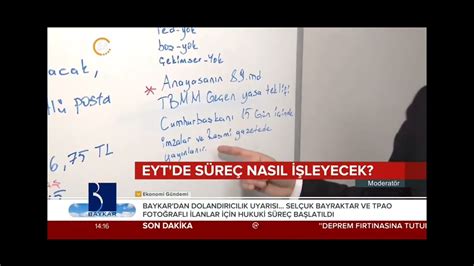 red-yok
boş-yok
Çekimser-Yok
acak,
lü posta
6,75 TL
* Anayasanın 89. md
TBMM Geçen yasa teklifi
Cumhurbaşkanı 15 Gün içinde
imzalar ve Resmi gazetede
yayınlanır.
EYT'DE SÜREÇ NASIL İŞLEYECEK?
Moderatör
Ekonomi Gündemi
BAYKAR
BAYKAR'DAN DOLANDIRICILIK UYARISI... SELÇUK BAYRAKTAR VE TPAO
FOTOĞRAFLI İLANLAR İÇİN HUKUKİ SÜREÇ BAŞLATILDI
14:16 SON DAKİKA "DEPREM FIRTINASINA TUTU